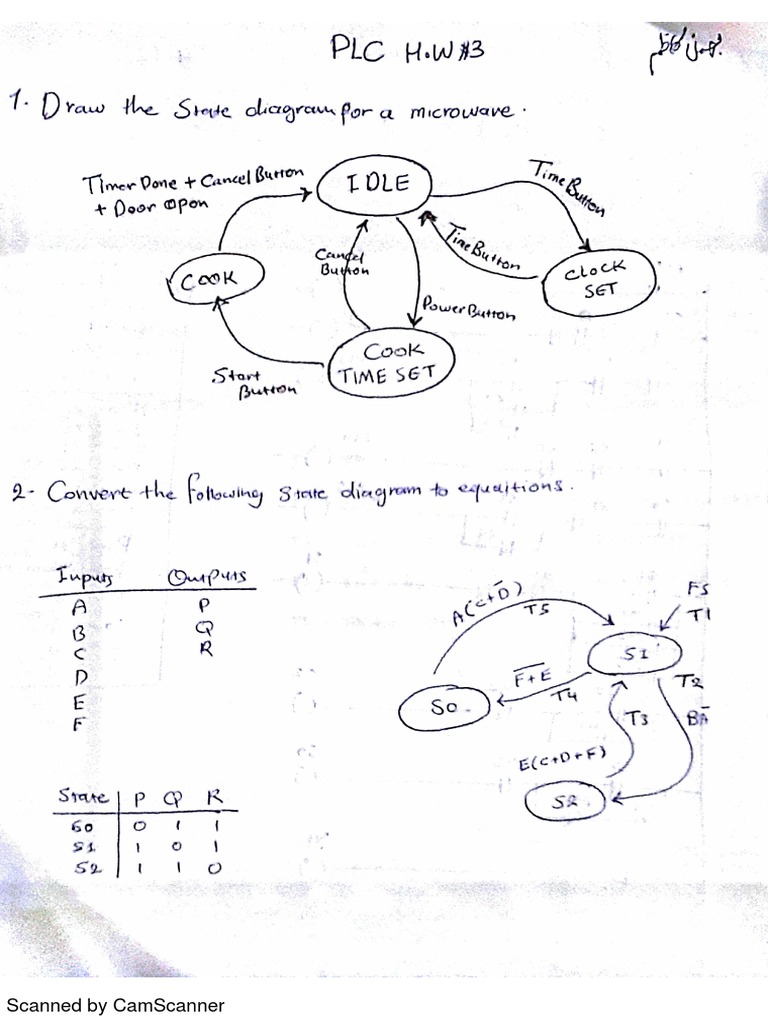 PLC H.W #3
1. Draw the State diagram for a microwave.
Timer Done + Cancel Button
+ Door Open
IDLE
Time Button
COOK
Cancel
Button
Time Button
CLOCK
SET
Power Button
Cook
TIME SET
Start
Button
2- Convert the following state diagram to equaitions.
Inputs Outputs
A P
B Q
C R
D
E
F
A(C+D̅)
T5
FS
T1
S1
F̅+̅E̅
T4
S0
T2
BA̅
T3
E(C+D+F)
S2
State P Q R
S0 0 1 1
S1 1 0 1
S2 1 1 0
Scanned by CamScanner